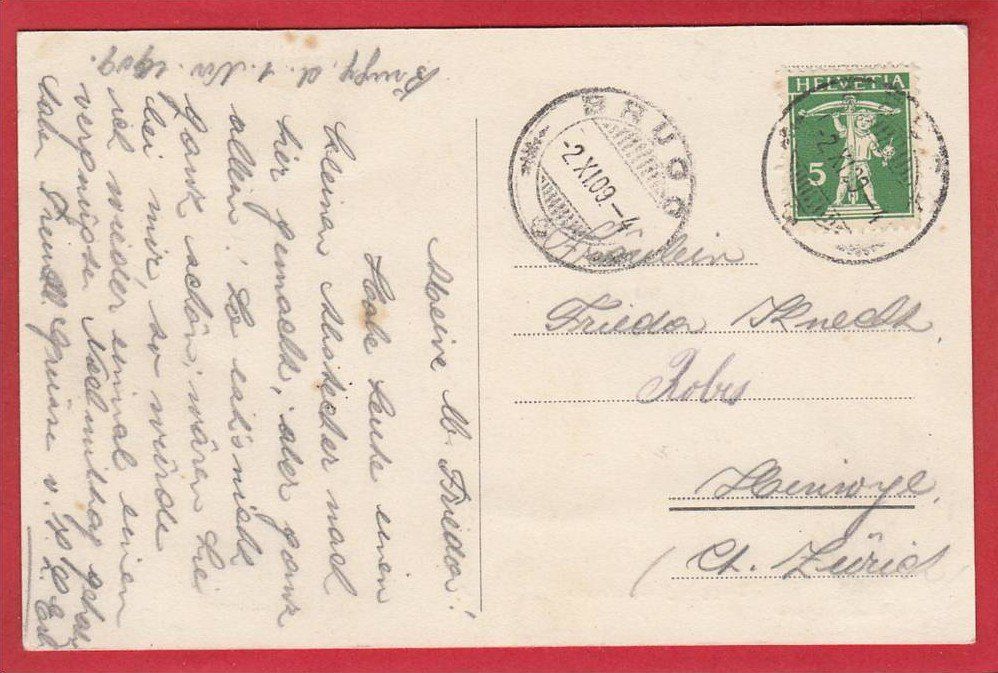 Brugg, d. 1. Nov. 1909.
Meine lb. Frieda!
Habe heute einen
kleinen Abstecher nach
hier gemacht, aber ganz
allein. So ists nicht
ganz schön, wären Sie
bei mir, so würde
ich wieder einmal einen
vergnügten Nachmittag
Freundl. Grüsse v.
BRUGG
-2.XI.09.-4
HELVETIA
5
-2.XI.09.-4
Fräulein
Frieda Knecht
Robes
Hinwyl.
(Ct. Zürich